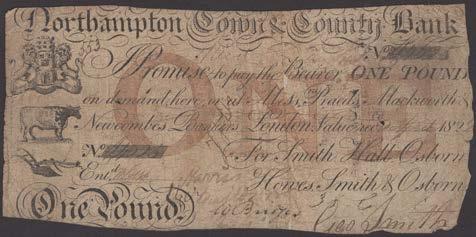 Northampton Town & County Bank
No
I Promise to pay the Bearer, ONE POUND
on demand here, or at Messrs. Praeds, Mackworth &
Newcombes Bankers London Value rec'd 182
No
For Smith Hall Osborn
Entd. Howes, Smith & Osborn
One Pound. Geo Smith
ONE